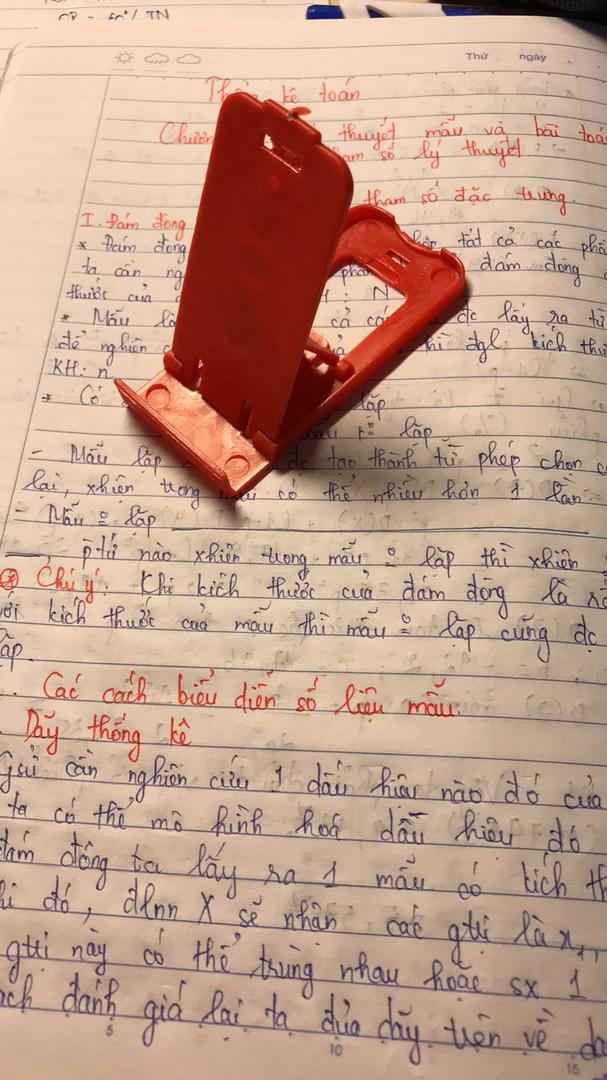 Thứ ngày
kê toán
Chươn thuyết mẫu và bài toá
tham số lý thuyết
tham số đặc trưng.
I. Đám đông
* Đám đông tất cả các phầ
ta cần ng đám đông
thước của : N
* Mẫu là cả đc lấy ra từ
để nghiên thì đgl kích thư
KH: n
* Có lặp
lặp
- Mẫu lặp đc tạo thành từ phép chọn c
lại, xhiện trong có thể nhiều hơn 1 lần
- Mẫu o lặp
ptử nào xhiện trong mẫu o lặp thì xhiện
Chú ý: Khi kích thước của đám đông là rấ
với kích thước của mẫu thì mẫu o lặp cũng đc
lặp.
Các cách biểu diễn số liệu mẫu.
Dãy thống kê
Gsử cần nghiên cứu 1 dấu hiệu nào đó của
ta có thể mô hình hoá dấu hiệu đó
đám đông ta lấy ra 1 mẫu có kích th
khi đó, đlnn X sẽ nhận các gtrị là x₁,
gtrị này có thể trùng nhau hoặc sx 1
đánh giá lại ta đưa dãy trên về dạ
5 10 15